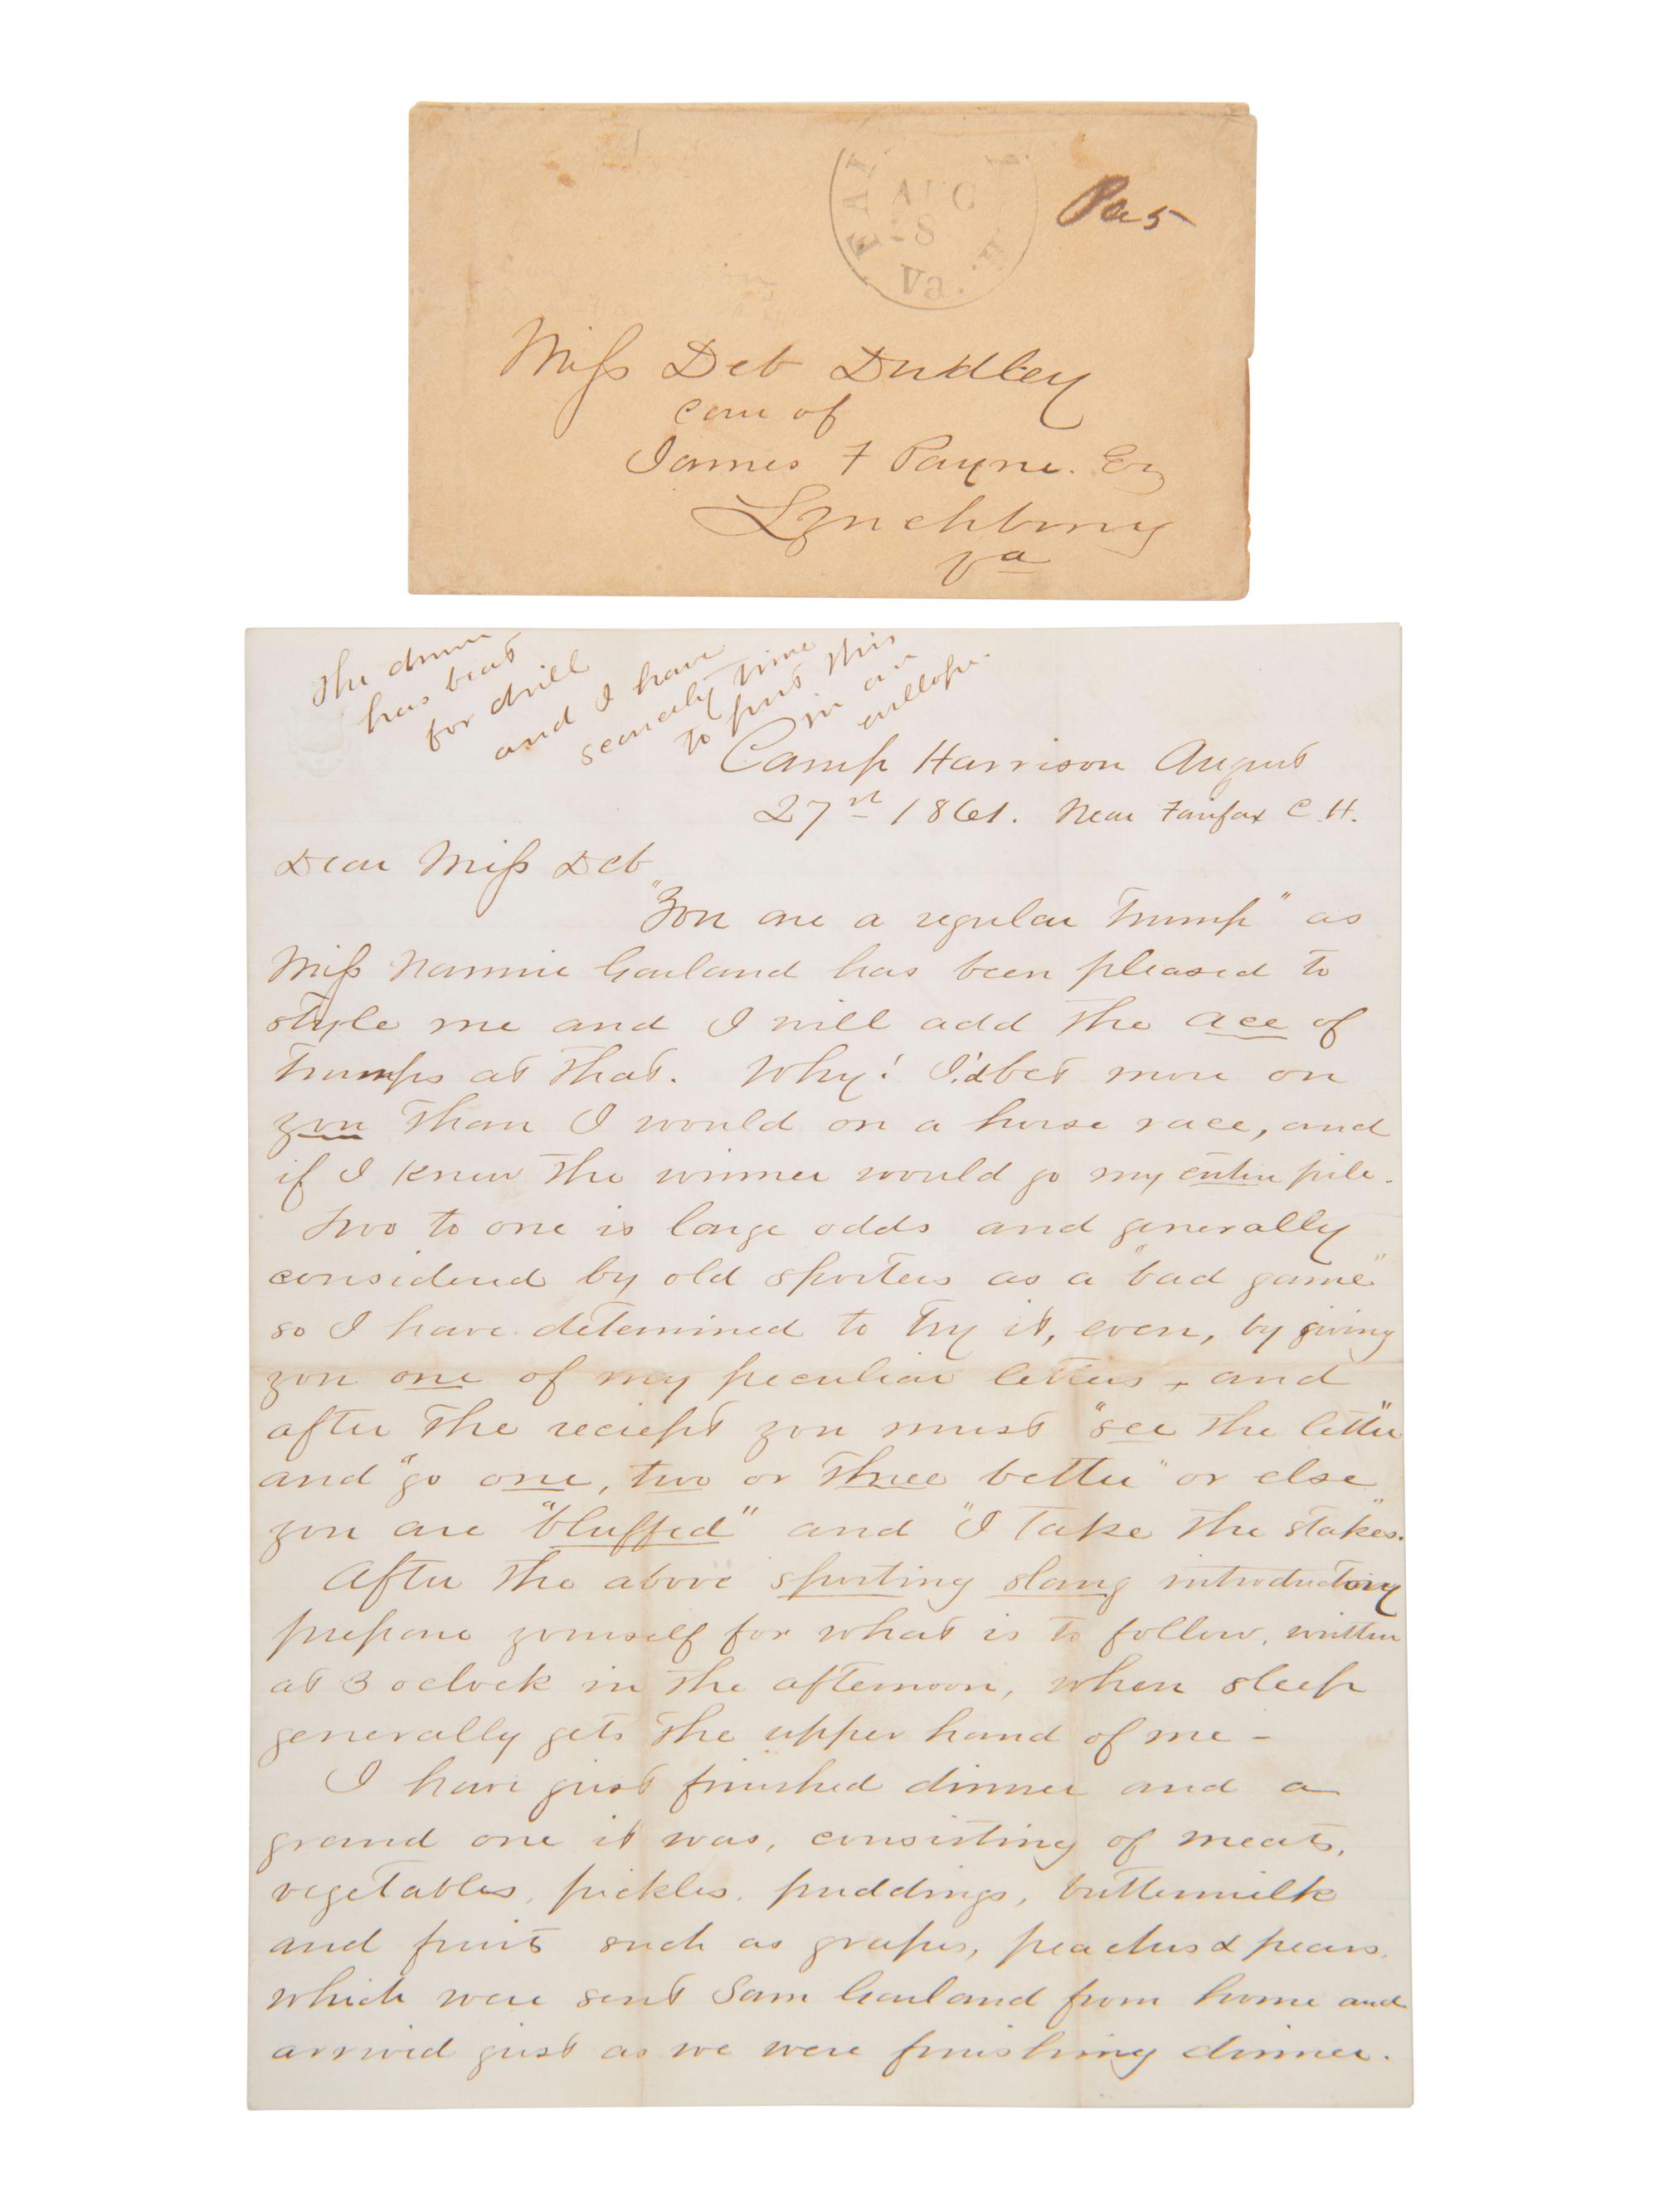 FAI
C. H.
AUG
-8
Va.
Pa 5
Miss Deb Dudley
care of
James F Payne. Esq
Lynchburg
Va
The drum
has beat
for drill
and I have
scarcely time
to put this
in an
envellope.
Camp Harrison August
27st 1861. Near Fairfax C. H.
Dear Miss Deb
"You are a regular trump" as
Miss Nannie Garland has been pleased to
style me and I will add the ace of
trumps at that. Why! I'd bet more on
you than I would on a horse race, and
if I knew the winner would go my entire pile.
Two to one is large odds and generally
considered by old sporters as a "bad game"
so I have determined to try it, even, by giving
you one of my peculiar letters, and
after the reciept you must "see the letter"
and "go one, two or three better" or else
you are "bluffed" and "I take the stakes."
After the above sporting slang introductory
prepare yourself for what is to follow, written
at 3 oclock in the afternoon, when sleep
generally gets the upper hand of me -
I have just finished dinner and a
grand one it was, consisting of meats,
vegetables, pickles, puddings, buttermilk
and fruits such as grapes, peaches & pears,
which were sent Sam Garland from home and
arrived just as we were finishing dinner.